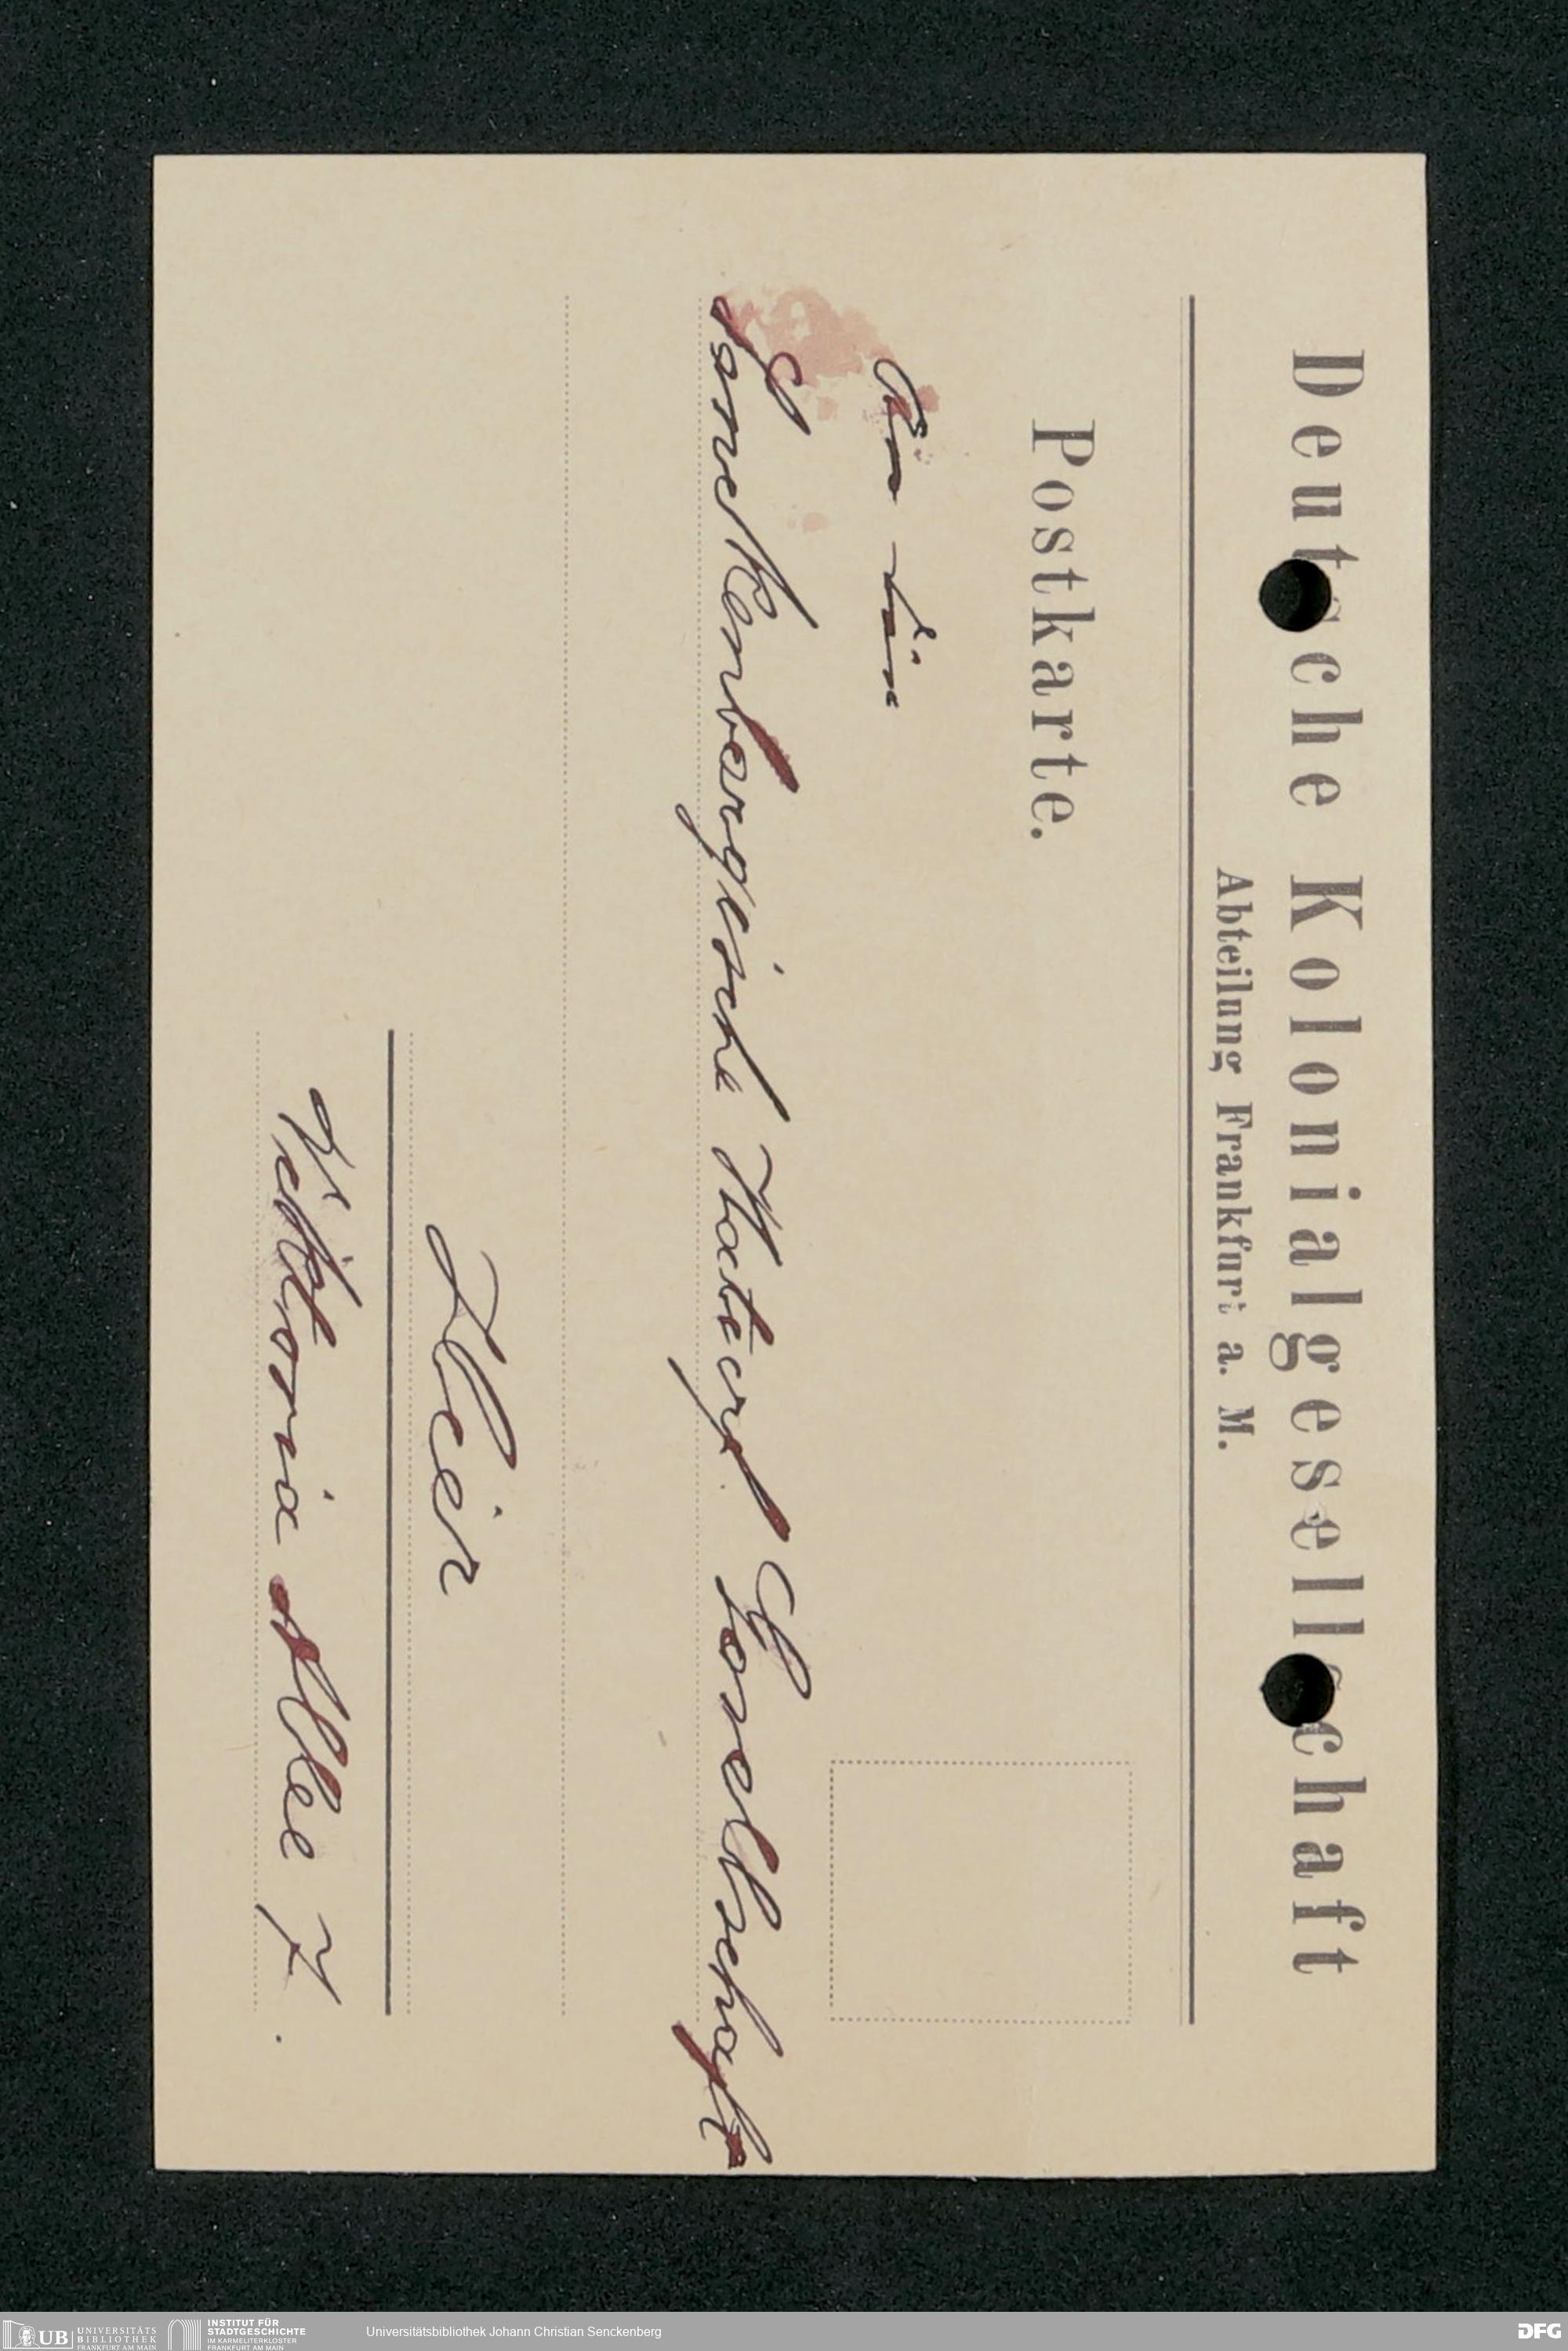 Deutsche Kolonialgesellschaft
Abteilung Frankfurt a. M.
Postkarte.
An die
Senckenbergische Naturf. Gesellschaft
Hier
Viktoria Allee 7.
UB UNIVERSITÄTS
BIBLIOTHEK
FRANKFURT AM MAIN
INSTITUT FÜR
STADTGESCHICHTE
IM KARMELITERKLOSTER
FRANKFURT AM MAIN
Universitätsbibliothek Johann Christian Senckenberg
DFG